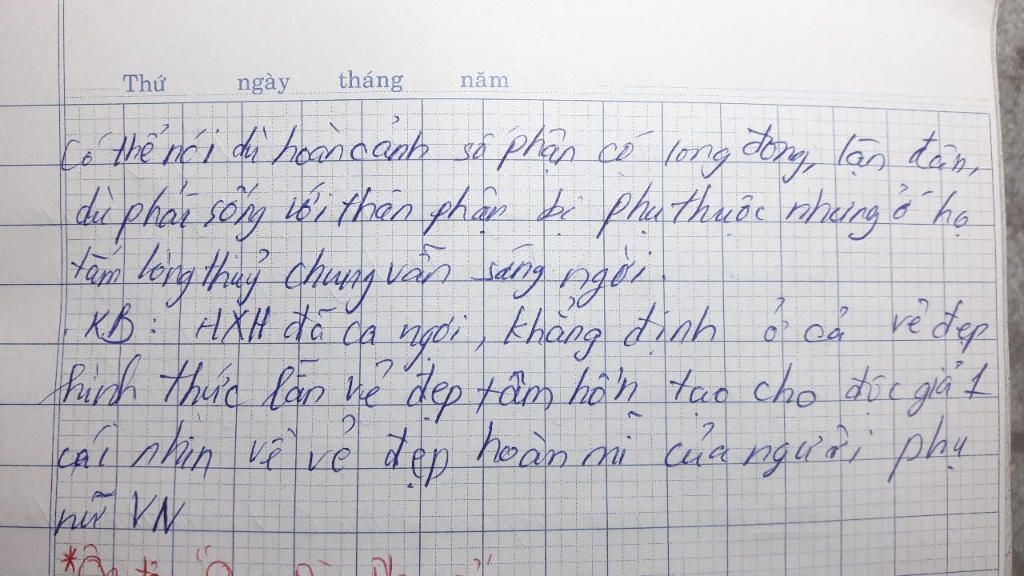 Thứ ngày tháng năm
Có thể nói dù hoàn cảnh số phận có long đong, lận đận,
dù phải sống với thân phận bị phụ thuộc nhưng ở họ
tấm lòng thuỷ chung vẫn sáng ngời.
. KB : HXH đã ca ngợi, khẳng định ở cả vẻ đẹp
hình thức lẫn vẻ đẹp tâm hồn tạo cho độc giả 1
cái nhìn về vẻ đẹp hoàn mĩ của người phụ
nữ VN